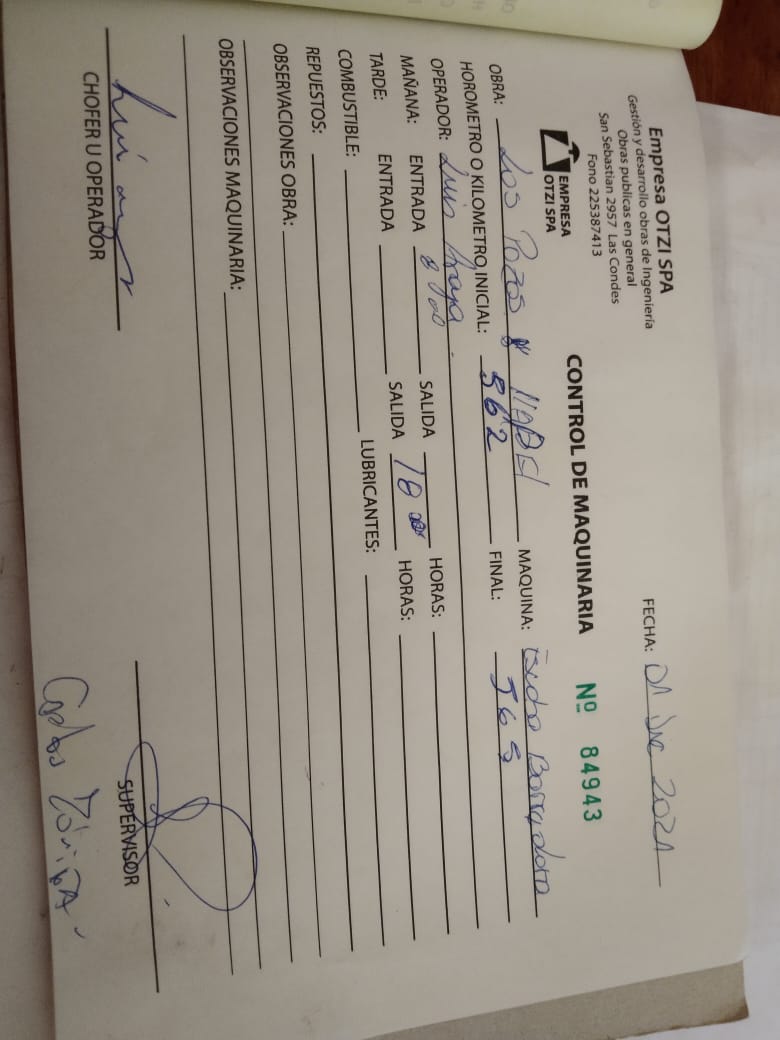 Empresa OTZI SPA
Gestión y desarrollo obras de Ingeniería
Obras publicas en general
San Sebastian 2957 Las Condes
Fono 225387413
EMPRESA
OTZI SPA
FECHA: 01 Dic 2021
CONTROL DE MAQUINARIA Nº 84943
OBRA: Los Pozos MABEL MAQUINA: Escoba Barredora
HOROMETRO O KILOMETRO INICIAL: 562 FINAL: 565
OPERADOR: Luis Araya
MAÑANA: ENTRADA 8 00 SALIDA HORAS:
TARDE: ENTRADA SALIDA 18 00 HORAS:
COMBUSTIBLE: LUBRICANTES:
REPUESTOS:
OBSERVACIONES OBRA:
OBSERVACIONES MAQUINARIA:
CHOFER U OPERADOR
SUPERVISOR
Carlos